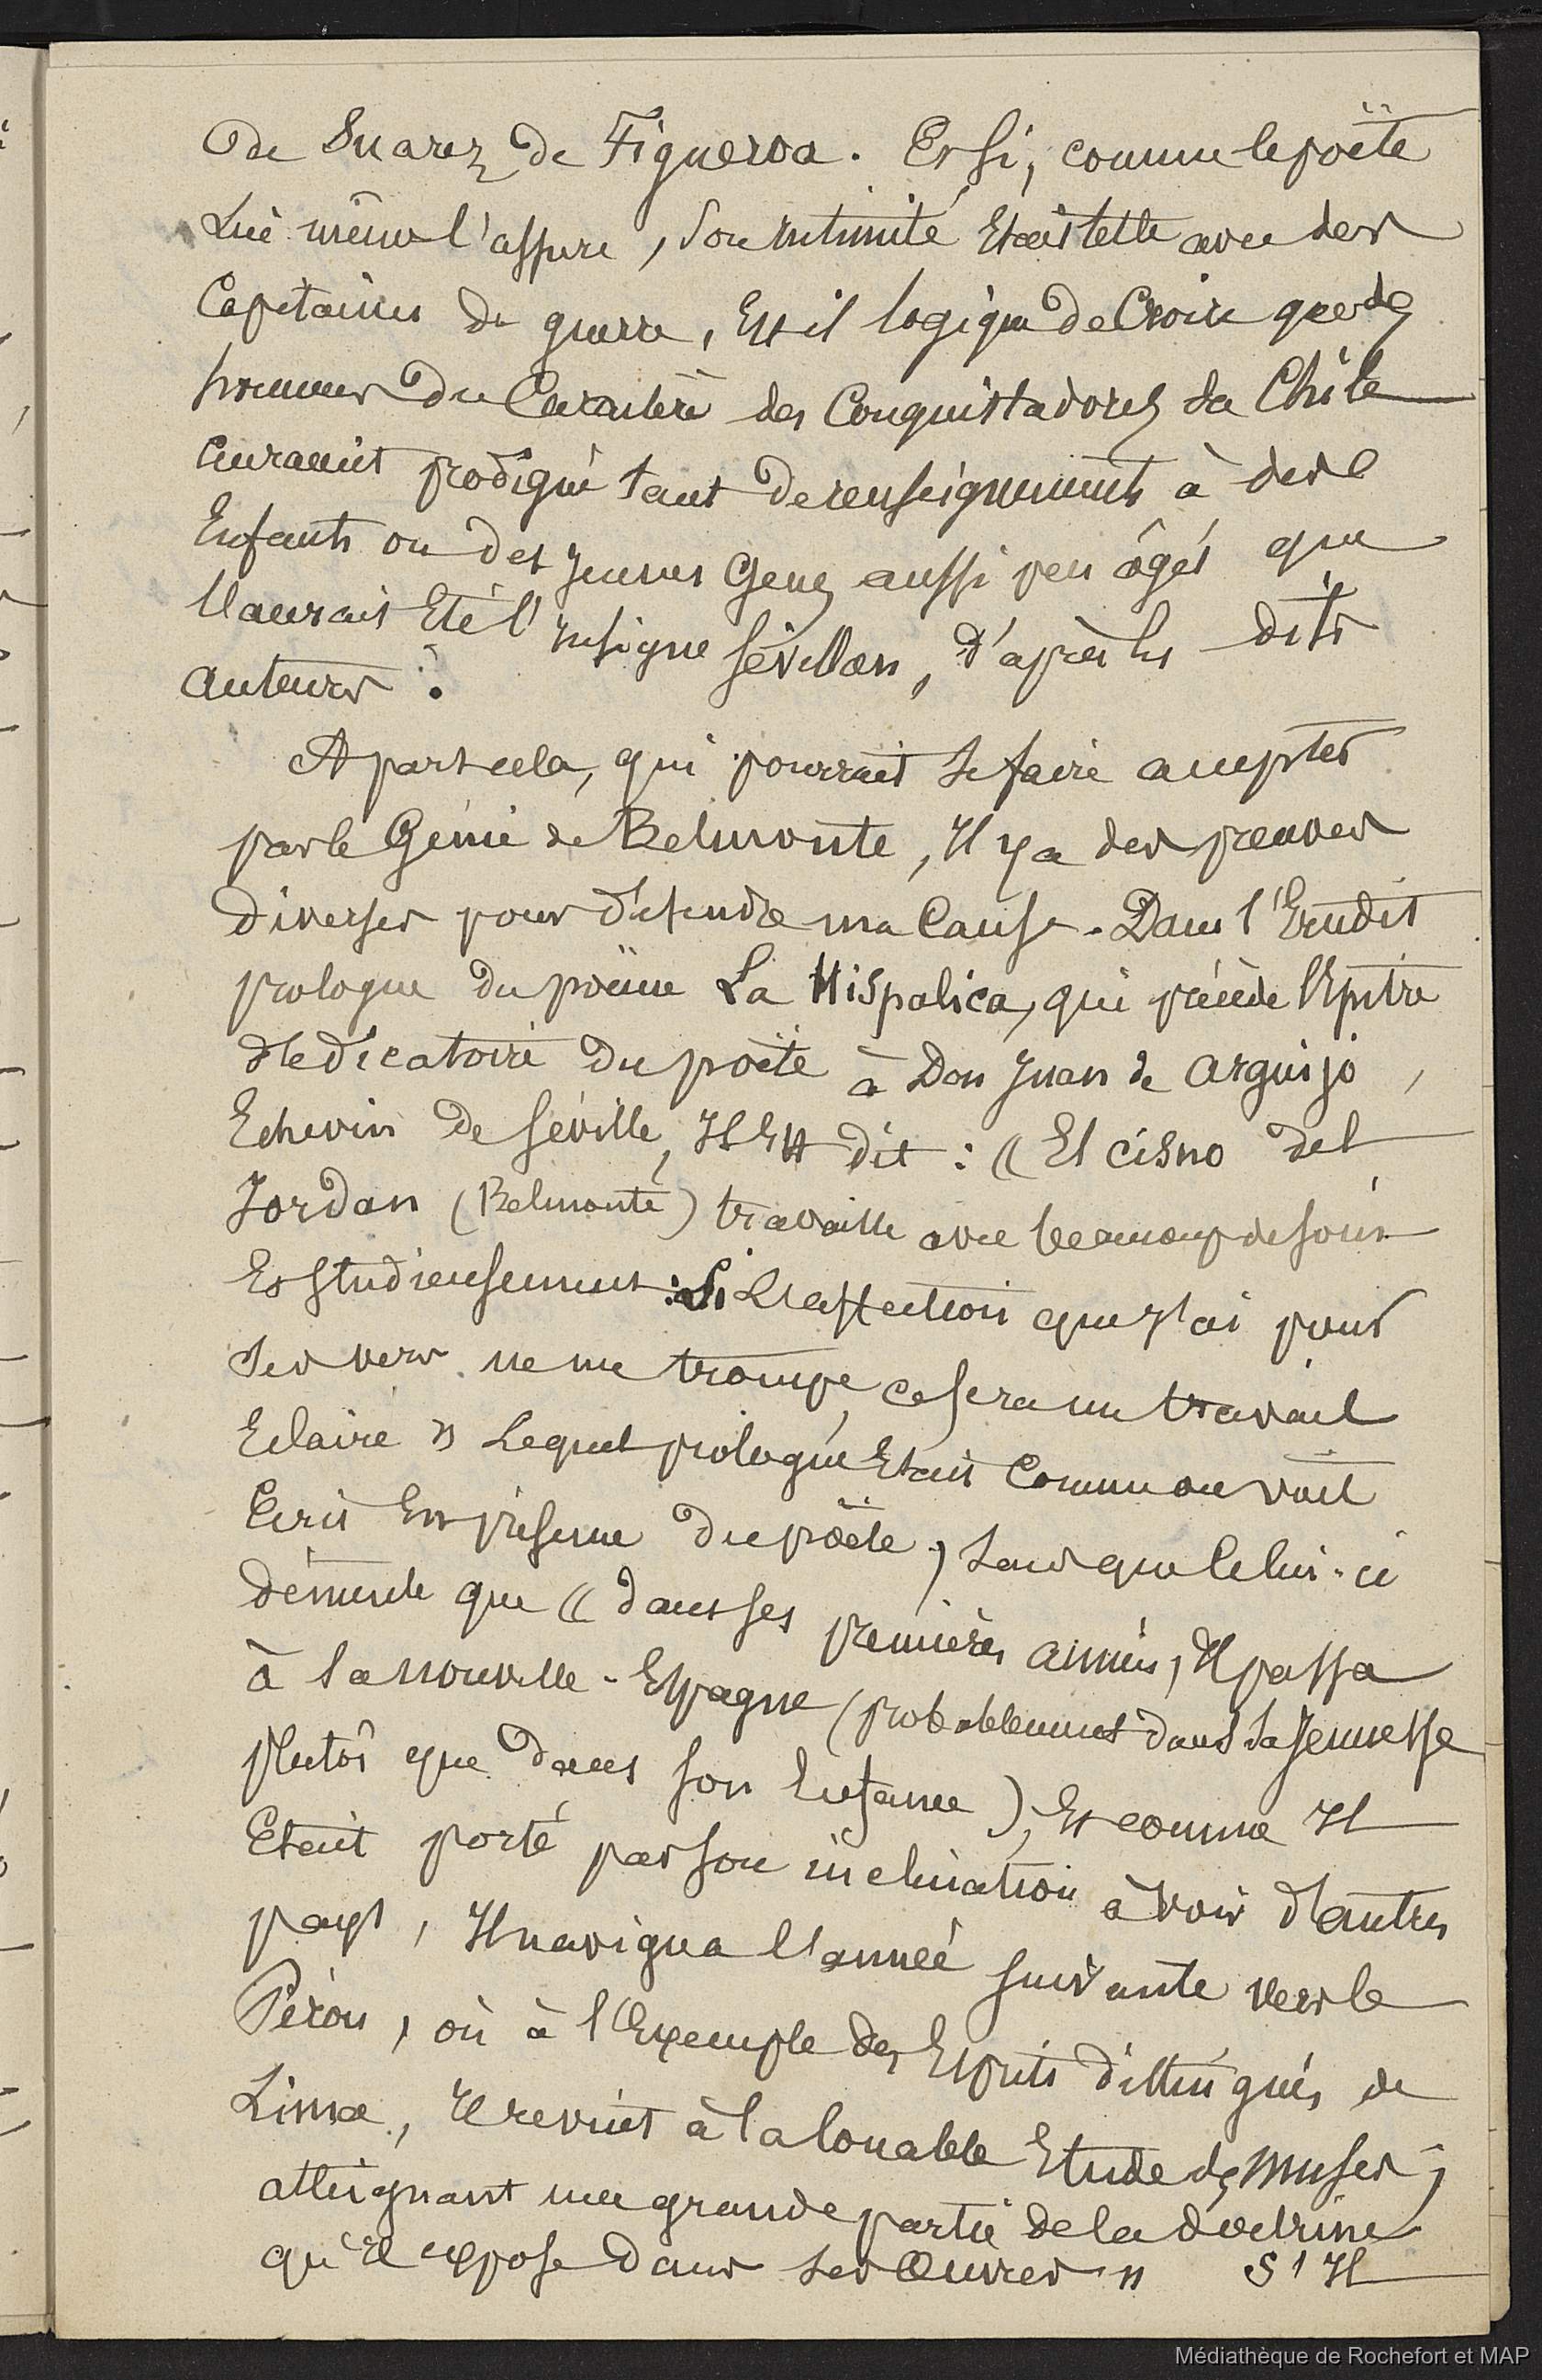 de Suarez de Figueroa. Et si, comme le poëte
Lui même l'assure, son intimité Etait telle avec des
Capitaines de guerre, Est il logique de Croire que des
hommes du Caractère des Conquistadores du Chile
auraient prodigué tant de renseignements à des
Enfants ou des jeunes Gens aussi peu âgés que
l'aurait Eté l'insigne Sévillan, d'après les dits
auteurs ?
A part cela, qui pourrait se faire accepter
par le Génie de Belmonte, Il y a des preuves
diverses pour défendre ma Cause. Dans l'Erudit
prologue du poëme La Hispalica, qui précède l'Epitre
dédicatoire du poëte à Don Juan de Arguijo,
Echevin de Séville, Il Est dit : (( El cisno del
Jordan (Belmonte) travaille avec beaucoup de soin
Et Studieusement : Si L'affection que J'ai pour
ses vers ne me trompe, ce sera un travail
Eclairé )) Lequel prologue Etait Comme on voit
Ecrit En présence du poëte, sans que Celui-ci
démente que (( dans ses premières années, Il passa
à la nouvelle-Espagne (probablement dans sa Jeunesse
plutôt que dans son Enfance), Et comme Il
Etait porté par son inclination à voir d'autres
pays, Il navigua l'année suivante vers le
Pérou, où à l'Exemple des Esprits distingués de
Lima, Il revint à la louable Etude des Muses,
atteignant une grande partie de la doctrine
qu'Il expose dans ses Œuvres )) S'Il
Médiathèque de Rochefort et MAP